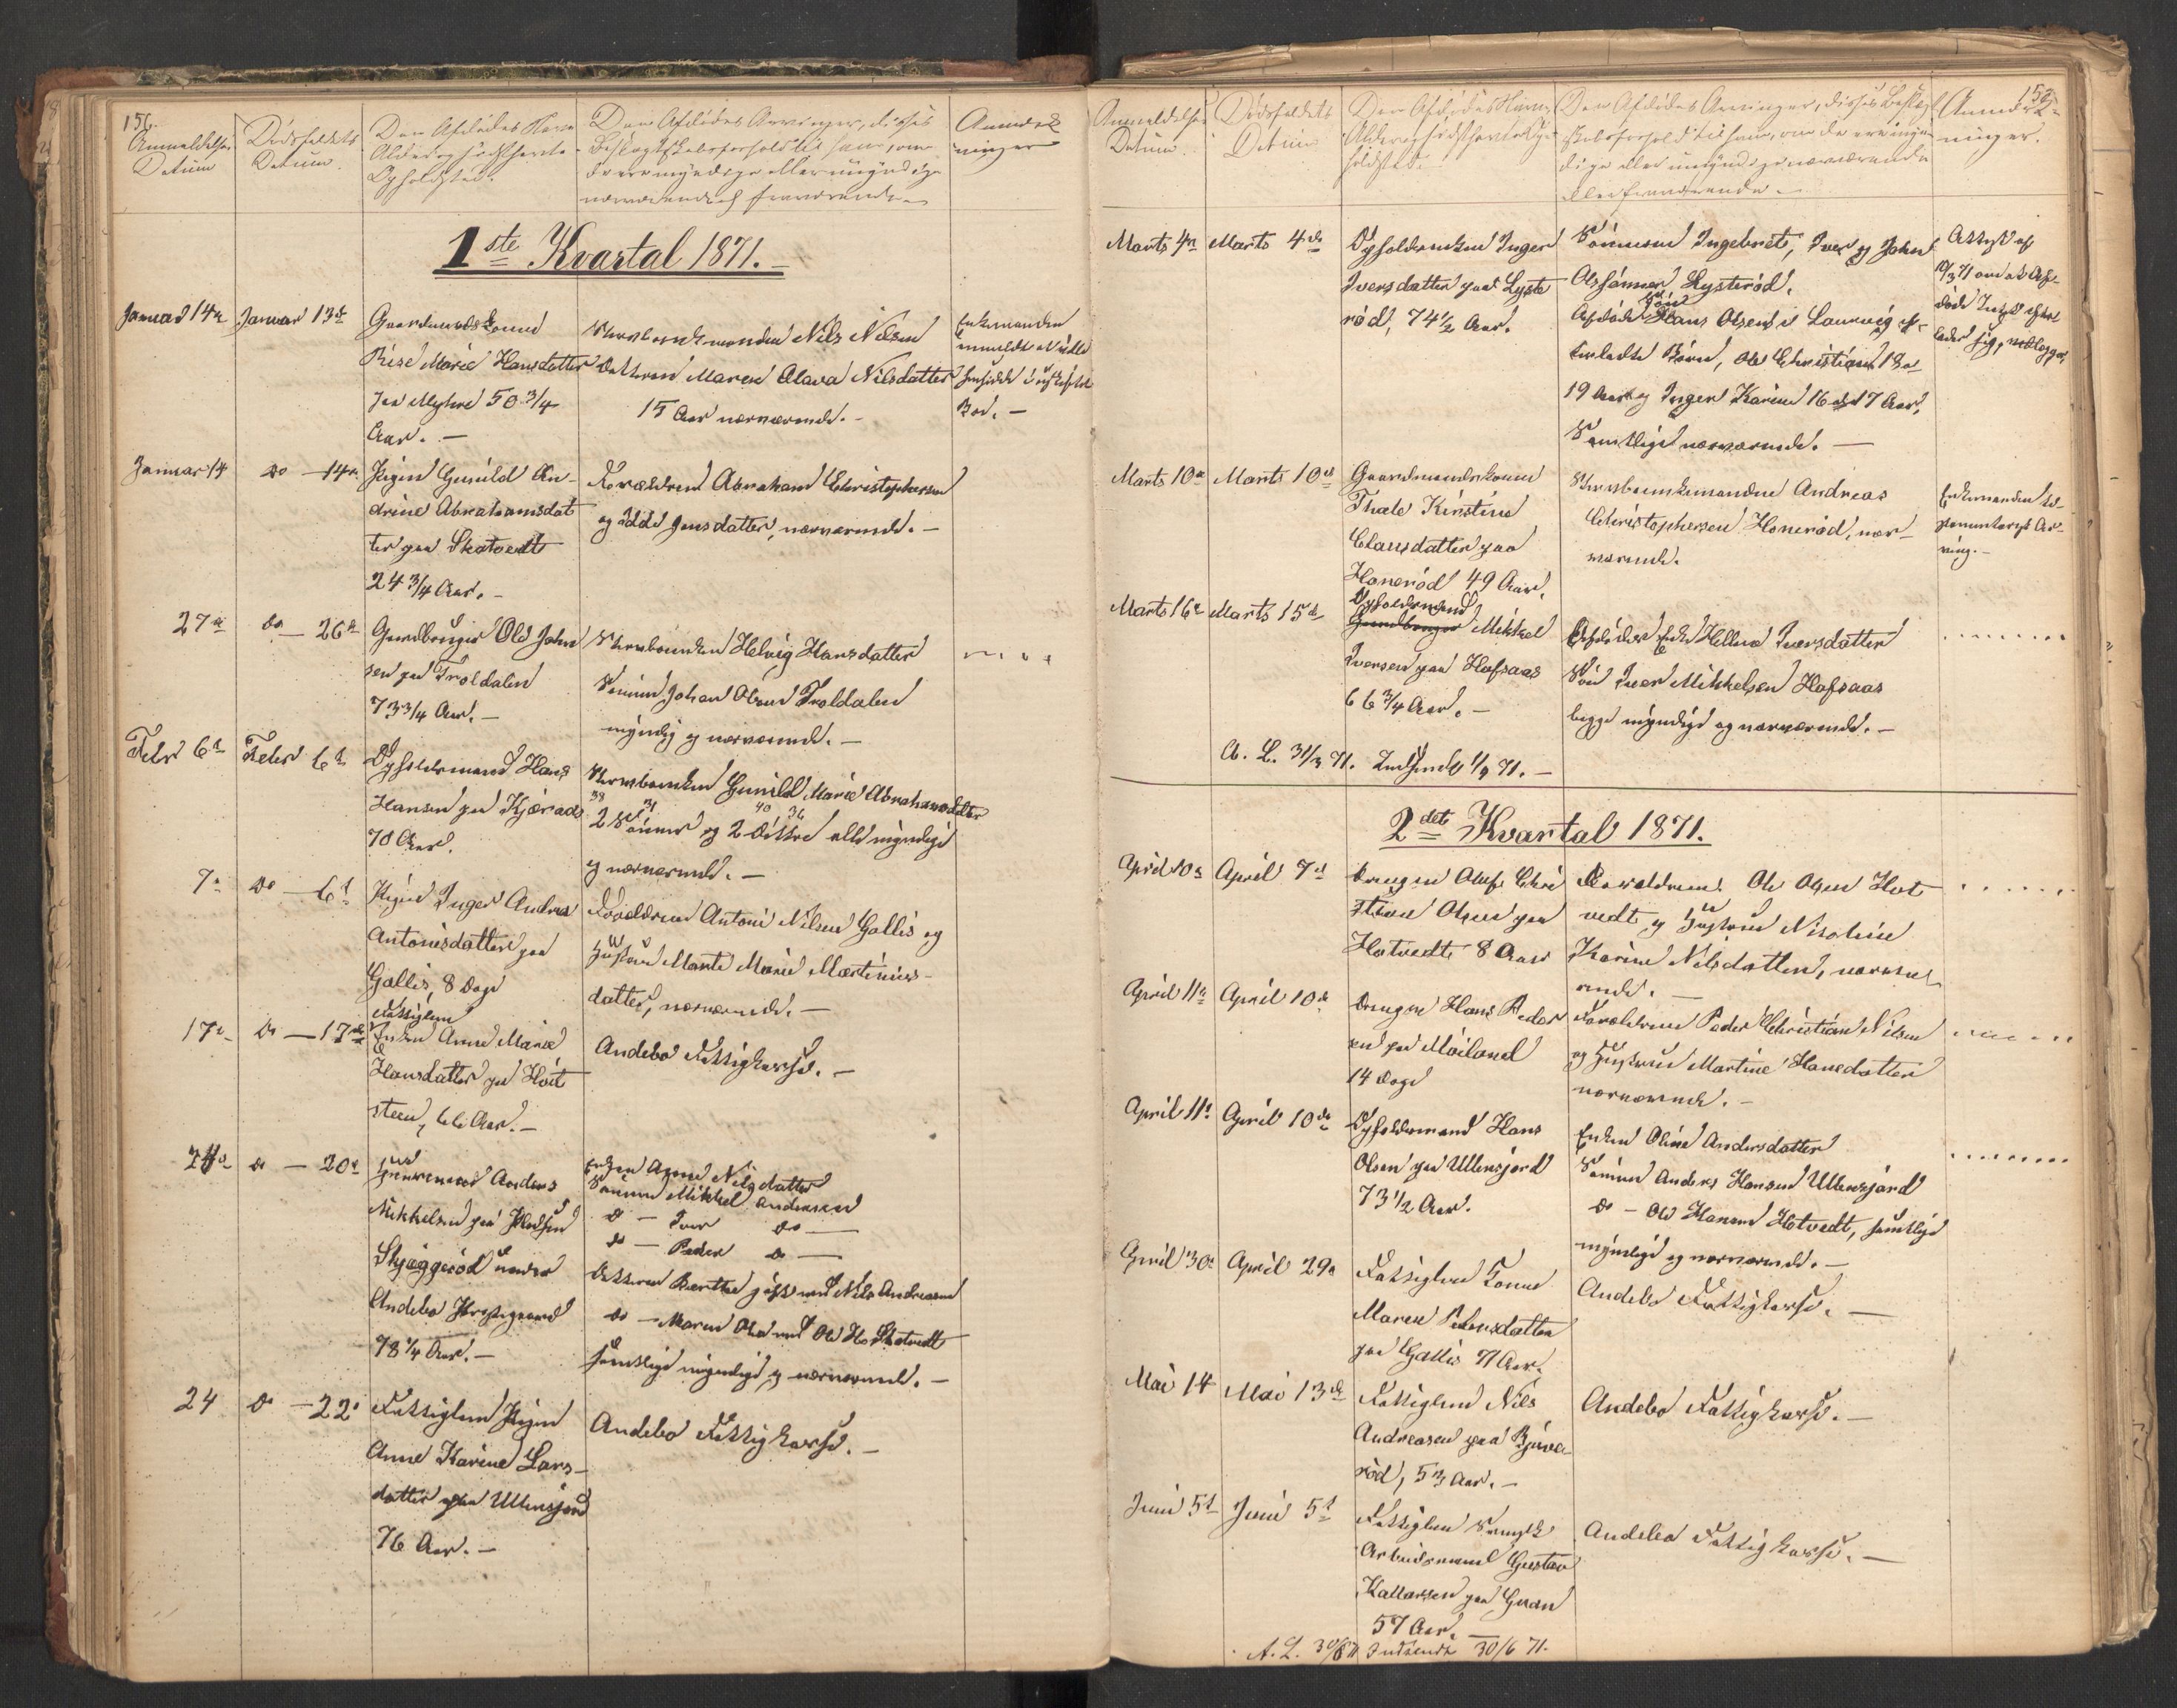 156.
Anmeldelses
Datum
Dødsfaldets
Datum
Den Afdødes Navn
Alder og sidste
Opholdssted.
Den Afdødes Arvinger, disses
Beslægtskabsforhold til ham, om
de ere myndige eller umyndige
nærværende eller fraværende
Anmærk
ninger
1ste Kvartal 1871.
Januar 14de
Januar 13de
Gaardmandskone
Risse Marie Hansdatter
paa Myhre 50 3/4
Aar. —
Nils Nilsen
Datteren Maren Olava Nilsdatter
15 Aar nærværende. —
Enkemanden
Bo. —
Januar 14
do — 14de
Pigen Gunild An-
drine Abrahamsdat
ter paa Skatvedt
24 3/4 Aar. —
Forældrene Abraham Christophersen
og Jensdatter, nærværende. —
27de
do — 26de
Gaardbruger Ole John
sen paa Troldalen
73 3/4 Aar. —
Helvig Hansdatter
Sønnen Johan Olsen Troldalen
myndig og nærværende. —
Febr 6te
Febr 6te
Opholdsmand Hans
Hansen paa Kjæraas
70 Aar.
Gunild Marie Abrahamsdatter
38 31 40 36
2 Sønner og 2 Døttre alle myndige
og nærværende. —
7de
do — 6te
Pigen Inger Andrea
Antonisdatter paa
Gallis, 8 Dage
Forældrene Antoni Nilsen Gallis og
Hustru Marte Marie Martinius-
datter, nærværende. —
17de
do — 17de
Fattiglem
Enken Anne Marie
Hansdatter paa Hvit
steen, 66 Aar. —
Andebo Fattigkasse. —
24de
do — 20de
Husmand Anders
Mikkelsen paa
Skjæggerød under
Andebo Prestegaard
78 1/4 Aar. —
Enken Anne Nilsdatter
Sønnen Mikkel Andersen
do — Iver do —
do — Peder do —
Datteren Berthe gift med Nils Andreasen
do — Maren do med Ole Skatvedt
samtlige myndige og nærværende. —
24
do — 22de
Fattiglem Pigen
Anne Karine Lars-
datter paa Ullensjord
76 Aar. —
Andebo Fattigkasse. —
157.
Anmeldelses
Datum
Dødsfaldets
Datum
Den Afdødes Navn,
Alder og sidste Op-
holdssted.
Den Afdødes Arvinger, disses Beslægt
skabsforhold til ham, om de ere myn-
dige eller umyndige nærværende
eller fraværende —
Anmærk-
ninger.
Marts 4de
Marts 4de
Opholdsenken Inger
Iversdatter paa Lyste
rød, 74 1/2 Aar.
Sønnerne Ingebret, Iver og John
Olssønner Lysterød.
Afdøde Søn Hans Olsens i Laurvig ef-
terladte Børn, Ole Christian 18 a
19 Aar og Inger Karine 16 a 17 Aar,
Samtlige nærværende. —
Attest af
10/3 71 om at Af-
døde Intet efter
lader sig, vedlagges
Marts 10de
Marts 10de
Gaardmandskone
Thale Kirstine
Clausdatter paa
Honerød 49 Aar.
Andreas
Christophersen Honerød, nær-
værende.
Enkemanden te-
stamentarisk Ar-
ving. —
Marts 16de
Marts 15de
Opholdsmand
Gaardbruger Mikkel
Iversen paa Hofsaas
66 3/4 Aar. —
Afdødes Enke Hellene Iversdatter
Søn Iver Mikkelsen Hofsaas
begge myndige og nærværende. —
A. L. 31/3 71. Indsendt 1/4 71. —
2det Kvartal 1871.
April 10de
April 7de
Drengen Oluf Chri
stian Olsen paa
Hotvedt 8 Aar
Forældrene Ole Olsen Hot
vedt og Hustru Nicoline
Karine Nilsdatter, nærvæ
rende. —
April 11te
April 10de
Drengen Hans Peder
sen paa Møiland
14 Dage
Forældrene Peder Christian Nilsen
og Hustru Martine Hansdatter
nærværende. —
April 11te
April 10de
Opholdsmand Hans
Olsen paa Ullensjord
73 1/2 Aar.
Enken Oline Andersdatter
Sønnen Anders Hansen Ullensjord
do — Ole Hansen Hotvedt, samtlige
myndige og nærværende. —
April 30te
April 29de
Fattiglem Konen
Maren Pedersdatter
paa Gallis 71 Aar.
Andebo Fattigkasse. —
Mai 14
Mai 13de
Fattiglem Nils
Andreasen paa Bjuve-
rød, 53 Aar. —
Andebo Fattigkasse. —
Juni 5te
Juni 5te
Fattiglem Svensk
Arbeidsmand Gustav
Kallarsen paa Gran
57 Aar. —
Andebo Fattigkasse. —
A. L. 30/6 71 Indsendt 30/6 71.